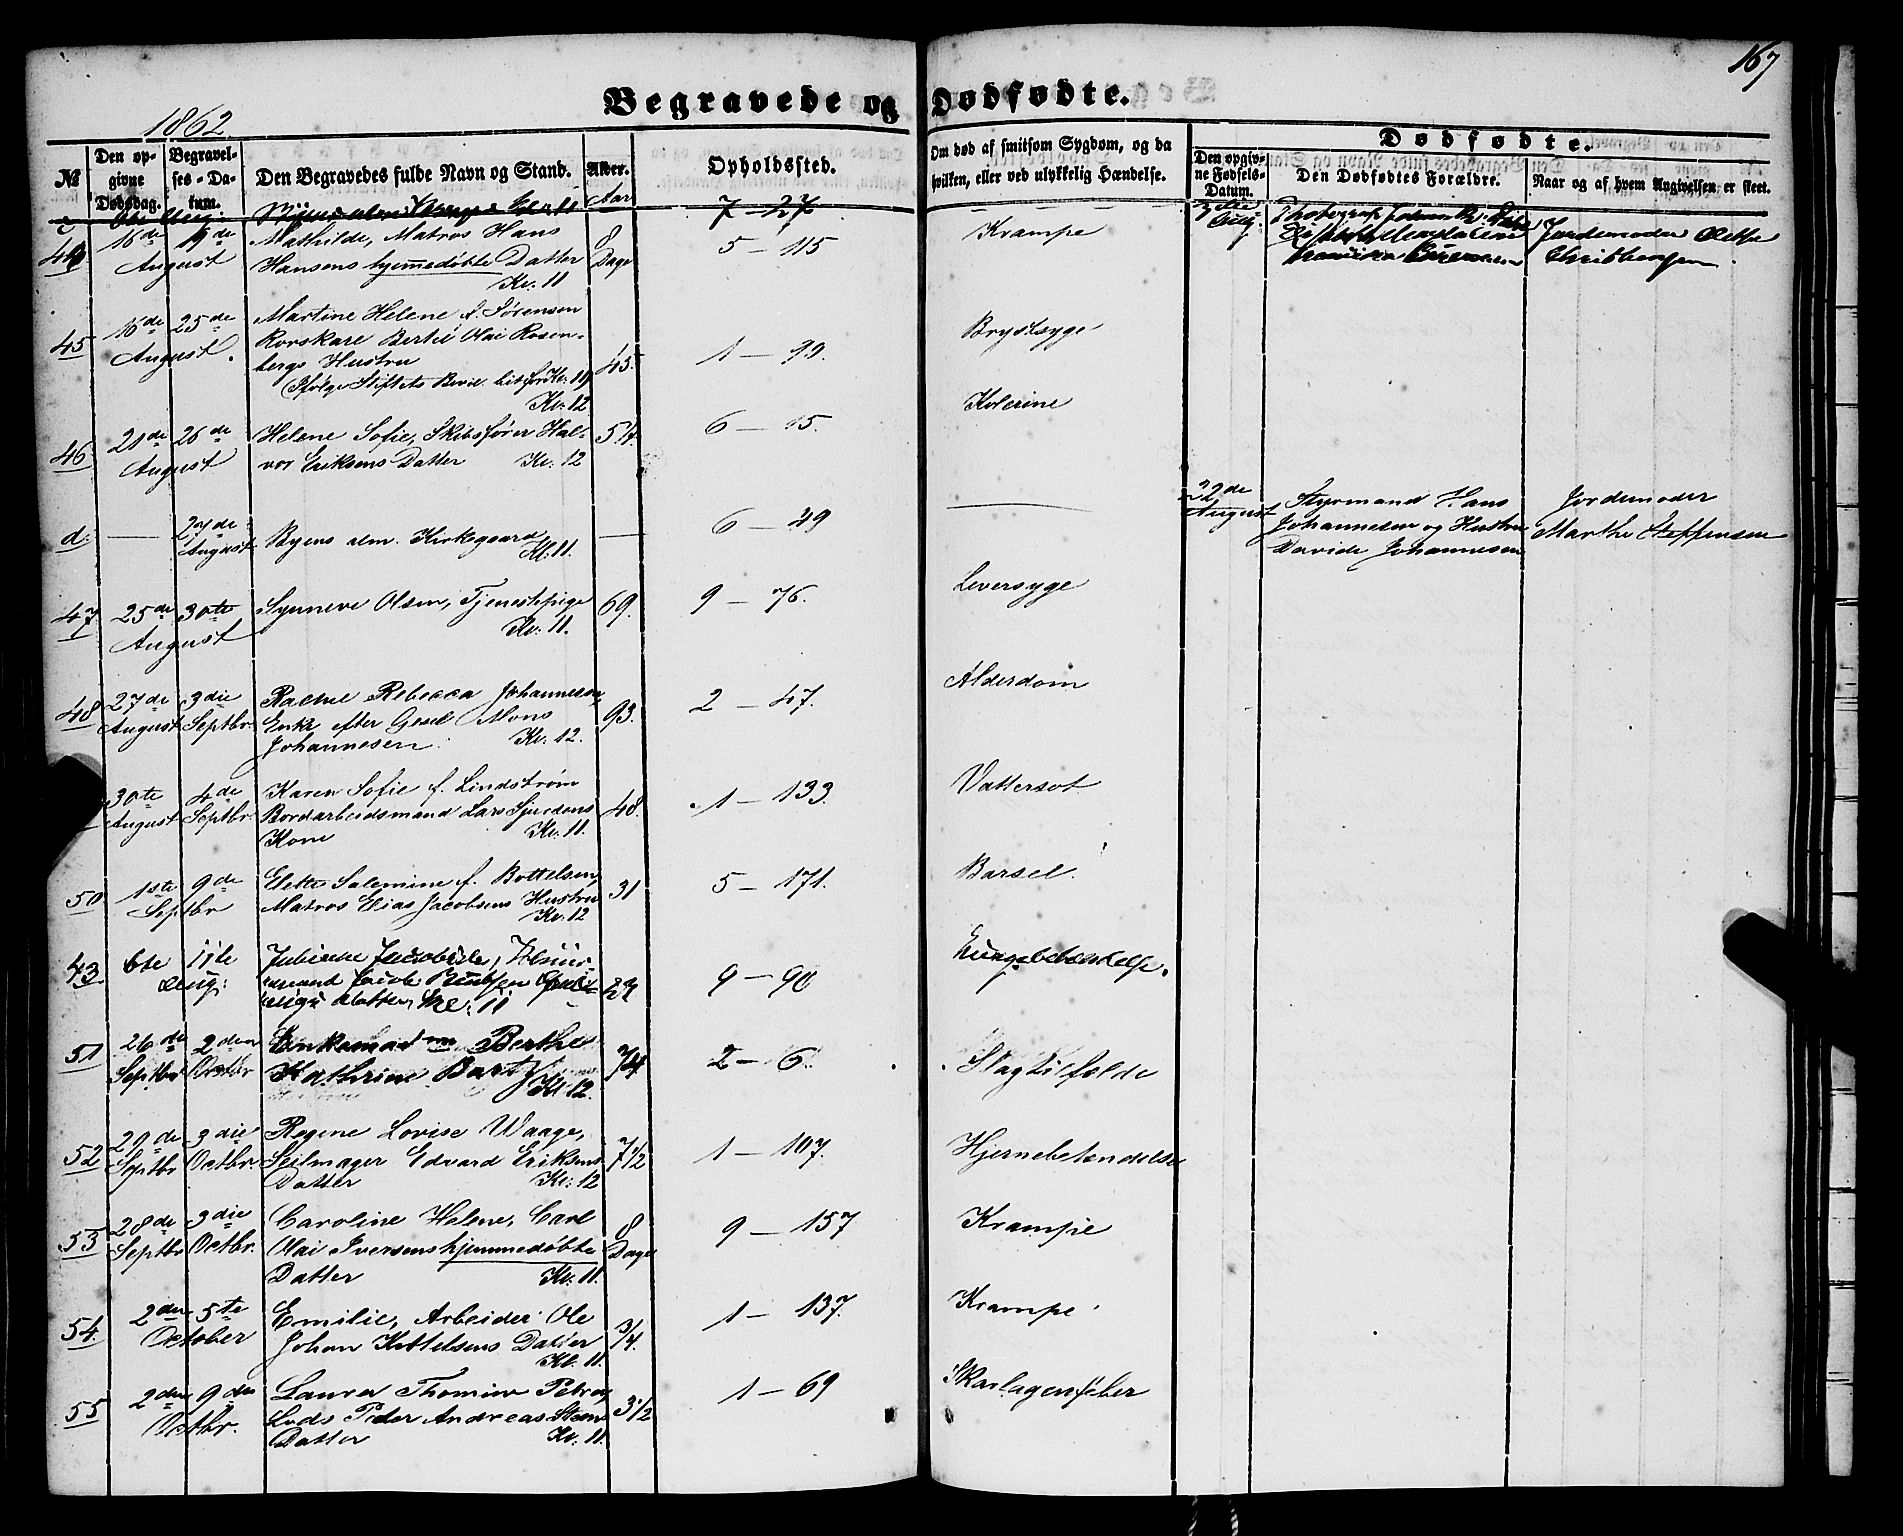 167
Begravede og Dødfødte.
1862
№
Den opgivne Dødsdag.
Begravelses-Datum.
Den Begravedes fulde Navn og Stand.
Alder.
Aar
Opholdssted.
Om død af smitsom Sygdom, og da hvilken, eller ved ulykkelig Hændelse.
Dødfødte.
Den opgivne Fødsels-Datum.
Den Dødfødtes Forældre.
Naar og af hvem Angivelsen er skeet.
7 — 27
Jordemoder
Christensen
44 16de 19de Mathilde, Matros Hans 8 5 — 115 Krampe
August Hansens hjemmedøbte Datter Dage
Kl: 11
45 16de 25de Martine Helene f. Sørensen Brystsyge
August. Rorskare Bertel Olai Rosen-
bergs Hustru 45. 1 — 99.
Kl: 12
46 21de 26de Helene Sofie, Skibsfører Hal- 54. 6 — 15. Kolerine
August vor Eriksens Datter Kl: 12
d: — 27de Byens alm. Kirkegaard — 6 — 49 —
August Kl: 11.
22de Styrmand Hans Jordemoder
August Johannesen og Hustru Marthe Steffensen
Davida Johannesen
47 25de 30te Synneve Olsen, Tjenestepige 69. 9 — 76. Leversyge
August Kl: 11.
48 27de 3die Rachel Rebecca Johannesen, 93. 2 — 47. Alderdom
August Septbr. Enke efter Gesel Mons
Johannesen. Kl: 12.
30te 4de Karen Sofie f. Lindstrøm 48. 1 — 133. Vattersot
August Septbr Bordarbeidsmand Lars Sjurdsens
Kone Kl: 11.
50 1ste 9de Elette Salemine f. Bottelsen, 31 5 — 171. Barsel.
Septbr Matros Elias Jacobsens Hustru
Kl: 12
43. 6te 11te 9 — 90
Aug: Datter, Kl: 11
51 26de 2den Enkemadme Berthe 74 2 — 6. Slagtilfælde
Septbr Octbr Kathrine Kl 12.
52 29de 3die Regine Lovise Waage, 7 1/2 1 — 107. Hjernebetændelse
Septbr Octbr Seilmager Edvard Eriksens
Datter Kl: 12
53 28de 3die Caroline Helene, Carl 8 9 — 157 Krampe
Septbr Octbr. Olai Iversens hjemmedøbte Dage
Datter Kl: 11.
54. 2den 5te Emilie, Arbeider Ole 3/4. 1 — 137. Krampe
October Johan Kittelsens Datter
Kl. 11.
55 2den 9de Laura Thomine Petrea, 3 1/2 1 — 69 Skarlagensfeber
Octbr. Lods Peder Andreas Steens
Datter Kl. 11.